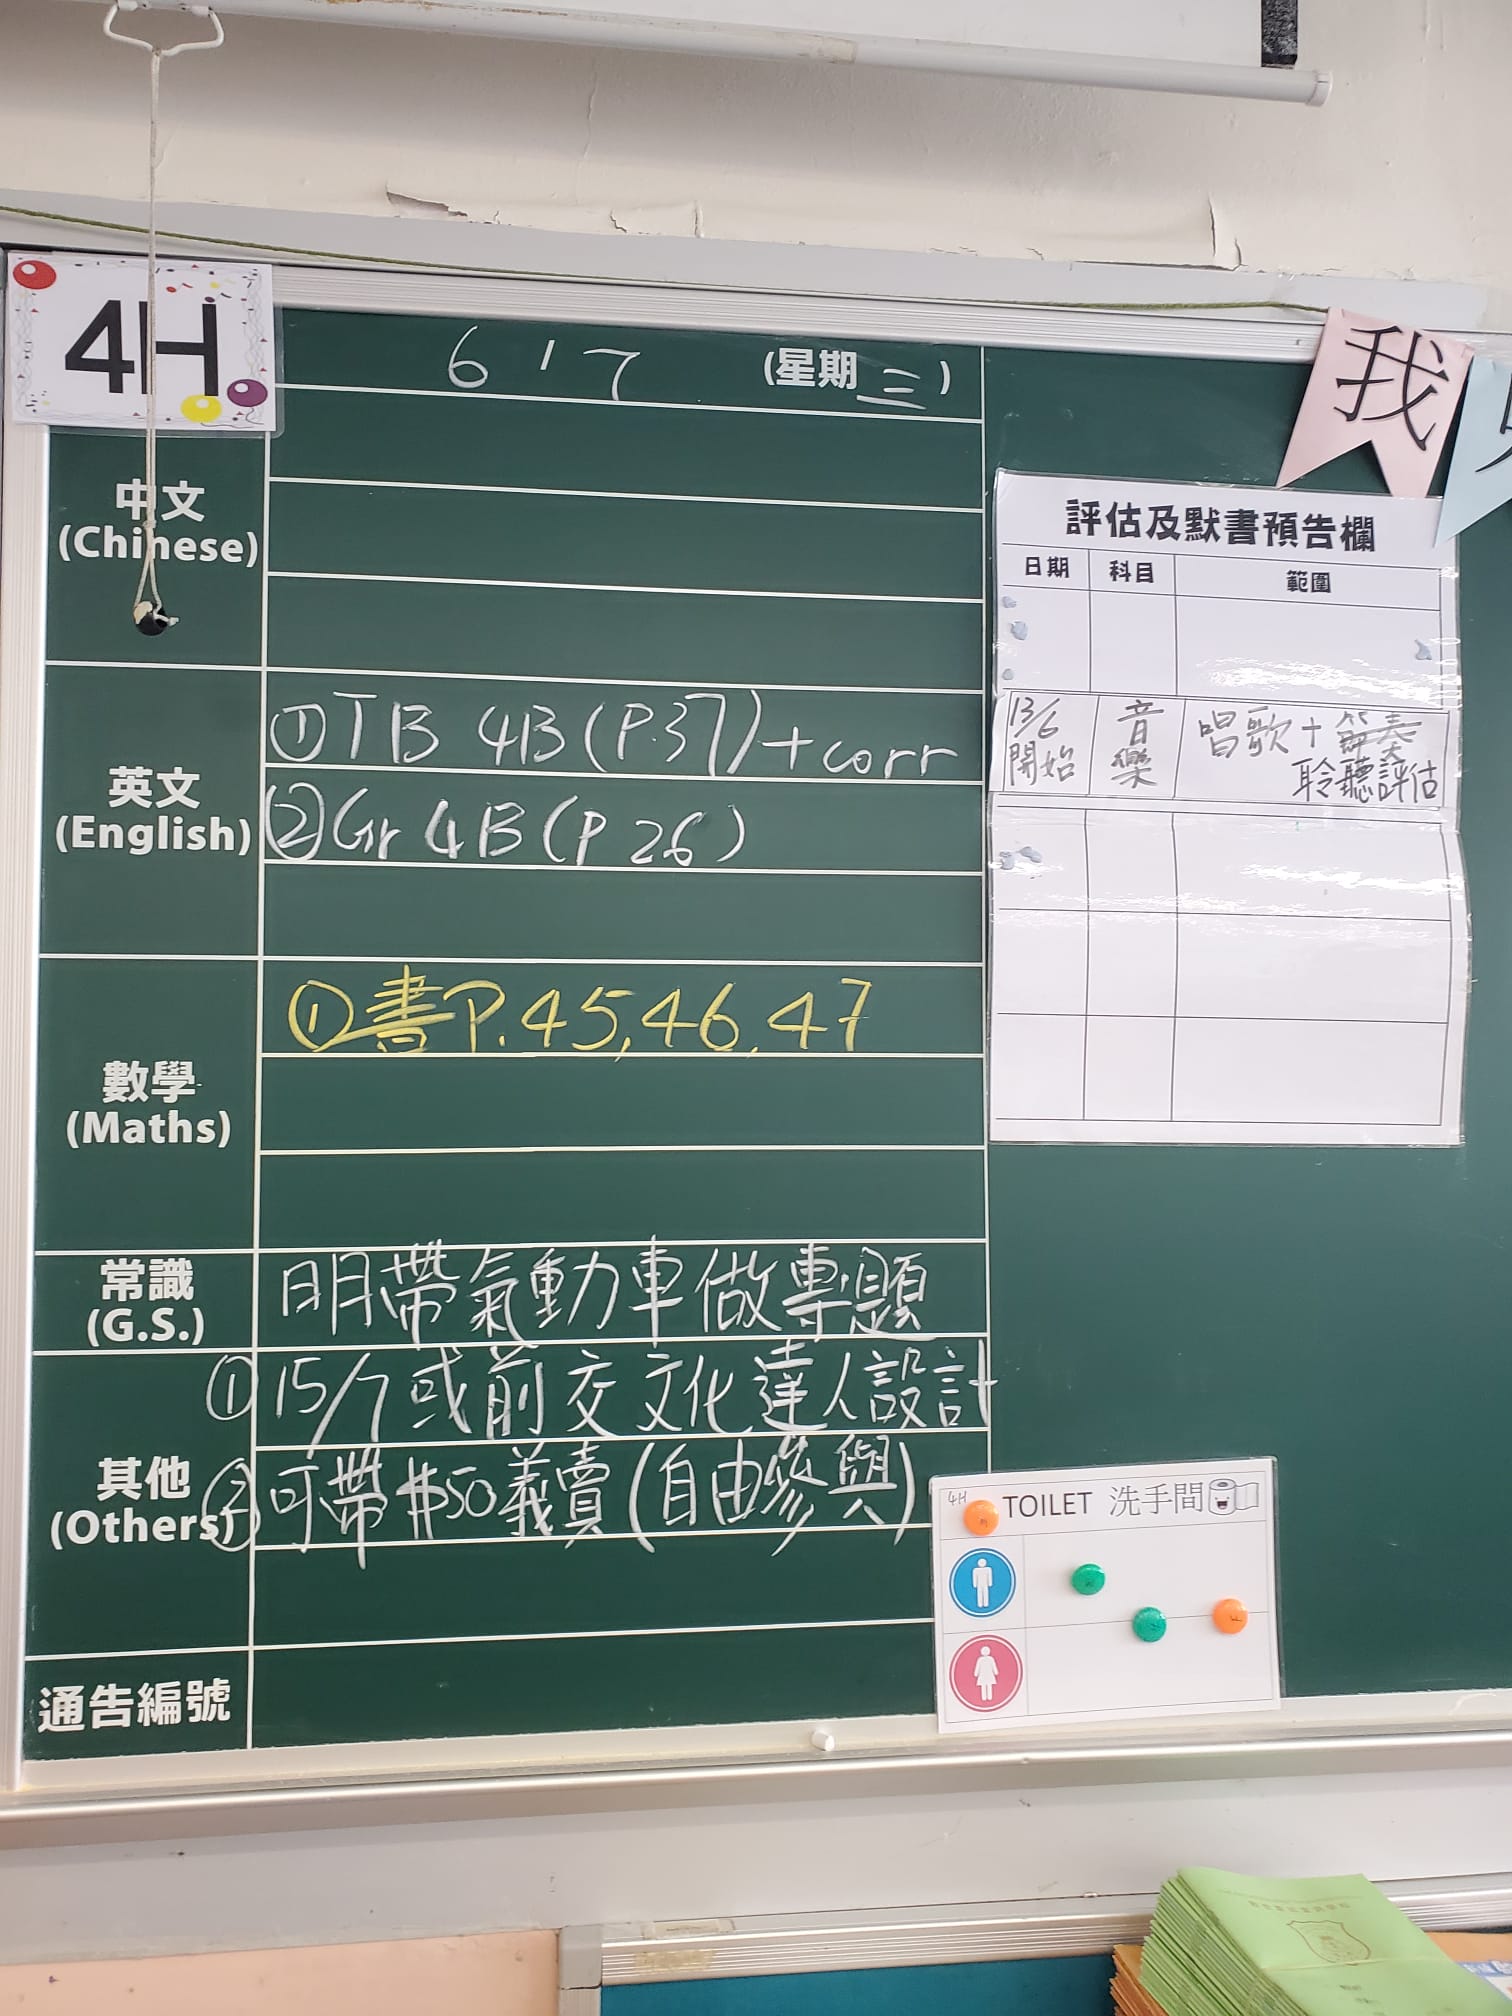 4H
6 ' 7 (星期三)
中文
(Chinese)
英文
(English)
① TB 4B (P.37) + corr
② Gr 4B (P 26)
數學
(Maths)
① 書P.45,46,47
常識
(G.S.)
明帶氣動車做專題
其他
(Others)
① 15/7 或前交文化達人設計
② 可帶$50義賣(自由參與)
通告編號
我
評估及默書預告欄
日期 科目 範圍
13/6 開始 音樂 唱歌+節奏
聆聽評估
4H
TOILET 洗手間